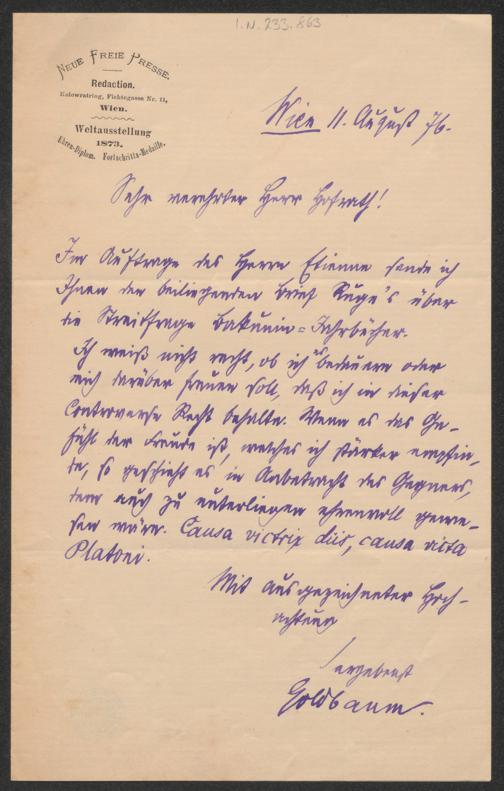 I.N. 233.863
NEUE FREIE PRESSE.
Redaction.
Kolowratring, Fichtegasse Nr. 11,
Wien.
Weltausstellung
1873.
Ehren-Diplom. Fortschritts-Medaille.
Wien 11. August 76.
Sehr verehrter Herr Hofrath!
Im Auftrage des Herrn Etienne sende ich
Ihnen den beiliegenden Brief Ruge's über
die Streitfrage Bakunin=Jahrbücher.
Ich weiß nicht recht, ob ich's bedauern oder
mich darüber freuen soll, daß ich in dieser
Controverse Recht behalte. Wenn es das Ge-
fühl der Freude ist, welches ich stärker empfin-
de, so geschieht es in Anbetracht des Gegners,
dem auch zu unterliegen ehrenvoll gewe-
sen wäre. Causa victrix diis, causa victa
Platoni.
Mit ausgezeichneter Hoch-
achtung
ergebenst
Goldbaum.